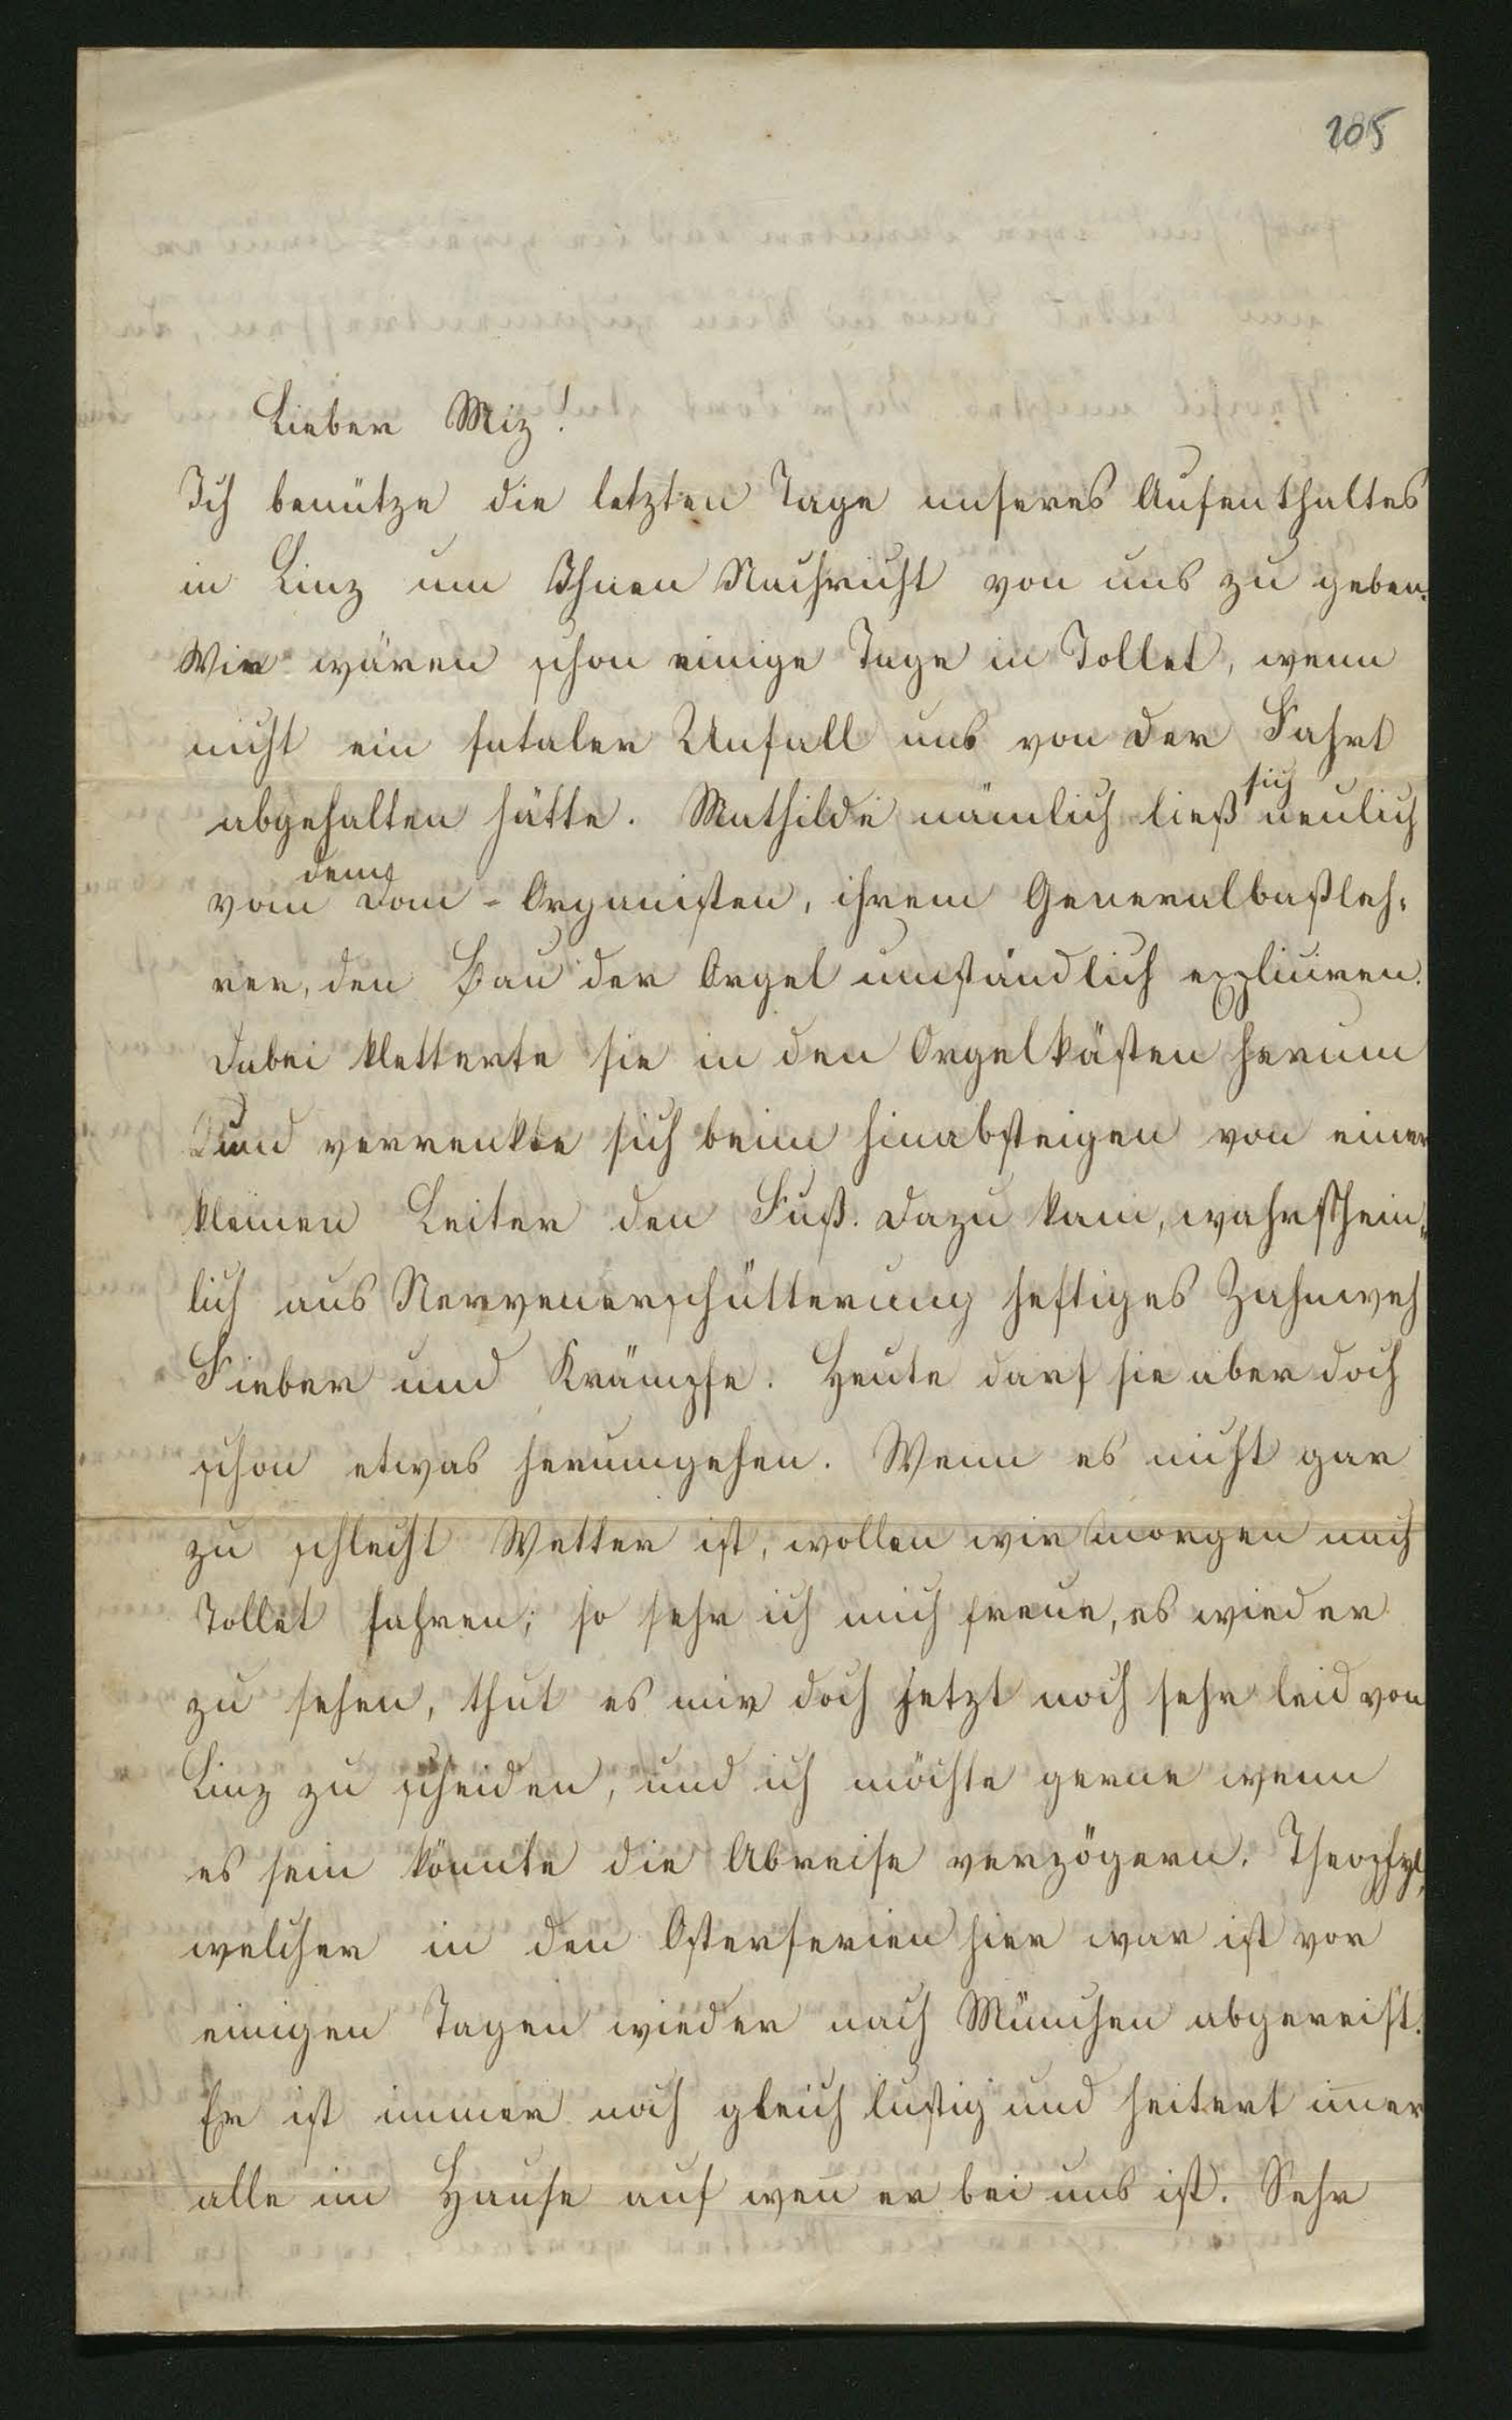 105
Lieber Miz!
Ich benütze die letzten Tage unseres Aufenthaltes
in Linz um Ihnen Nachricht von uns zu geben.
Wir wären schon einige Tage in Tollet, wenn
nicht ein fataler Unfall uns von der Fahrt
abgehalten hätte. Mathilde nämlich ließ sich neulich
von dem Dom-Organisten, ihrem Generalbaßleh-
rer, den Bau der Orgel umständlich expliciren.
Dabei kletterte sie in den Orgelkästen herum
und verrenkte sich beim hinabsteigen von einer
kleinen Leiter den Fuß. Dazu kam, wahrschein-
lich aus Nervenerschütterung heftiges Zahnweh
Fieber und Krämpfe. Heute darf sie aber doch
schon etwas herumgehen. Wenn es nicht gar
zu schlecht Wetter ist, wollen wir morgen nach
Tollet fahren; so sehr ich mich freue, es wieder
zu sehen, thut es mir doch jetzt noch sehr leid von
Linz zu scheiden, und ich möchte gerne wenn
es sein könnte die Abreise verzögern. Theophyl,
welcher in den Osterferien hier war ist vor
einigen Tagen wieder nach München abgereist.
Er ist immer noch gleich lustig und heitert im̅er
alle im Hause auf wen̅ er bei uns ist. Sehr